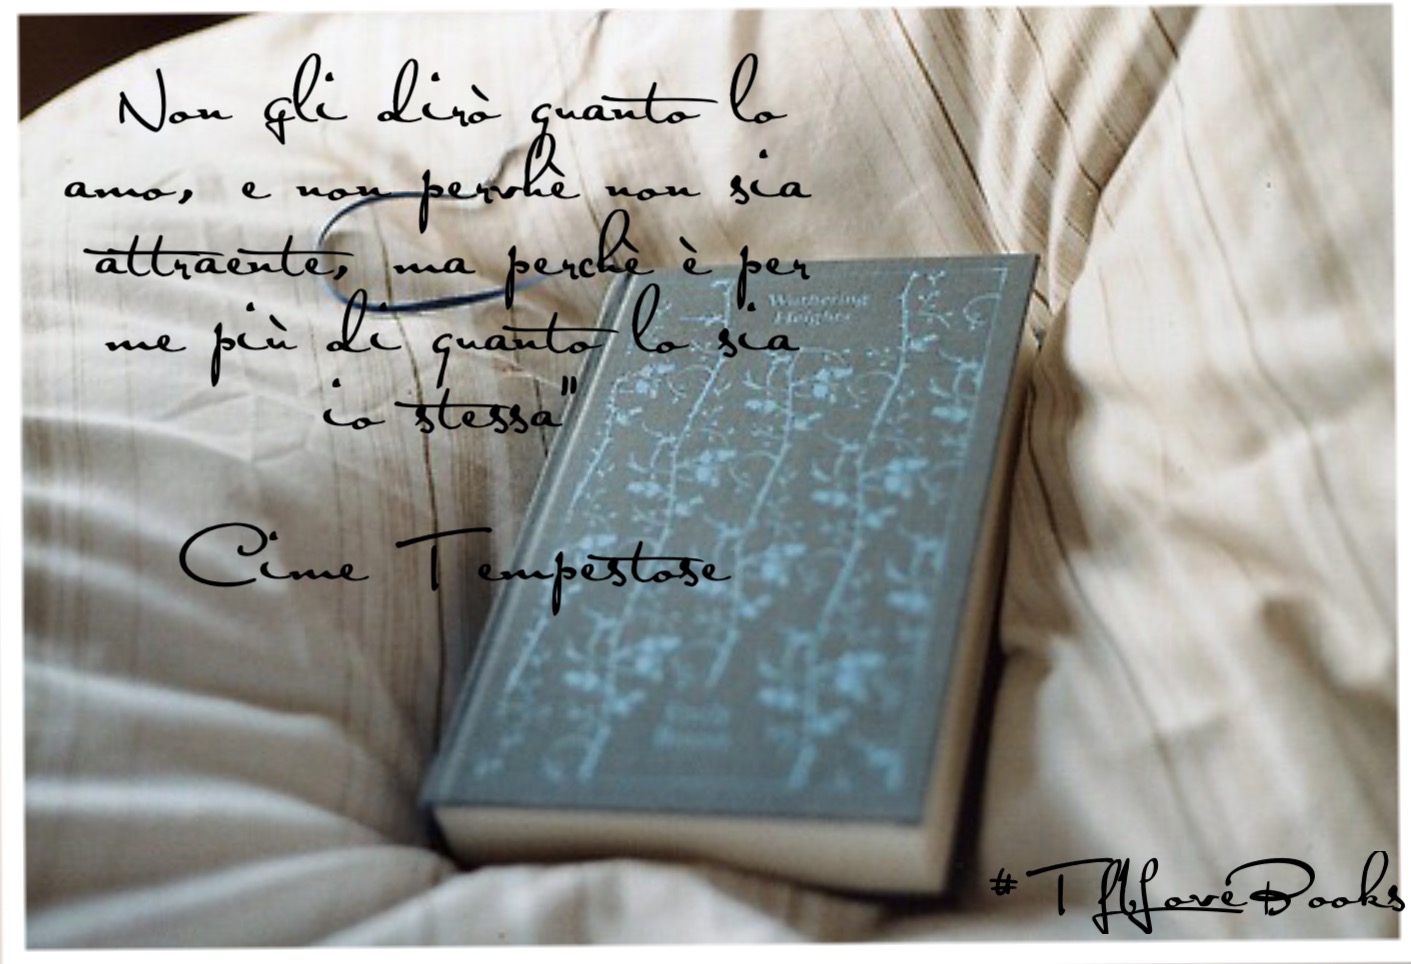 Non gli dirò quanto lo
amo, e non perchè non sia
attraente, ma perchè è per
me più di quanto lo sia
io stessa"
Cime Tempestose
Wuthering
Heights